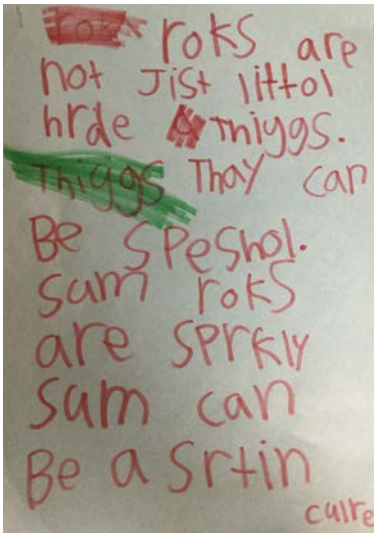 roks are
not Jist littol
hrde thiygs.
Thiggs Thay can
Be Speshol.
sum roks
are SPrkly
sum can
Be a Srtin
culre